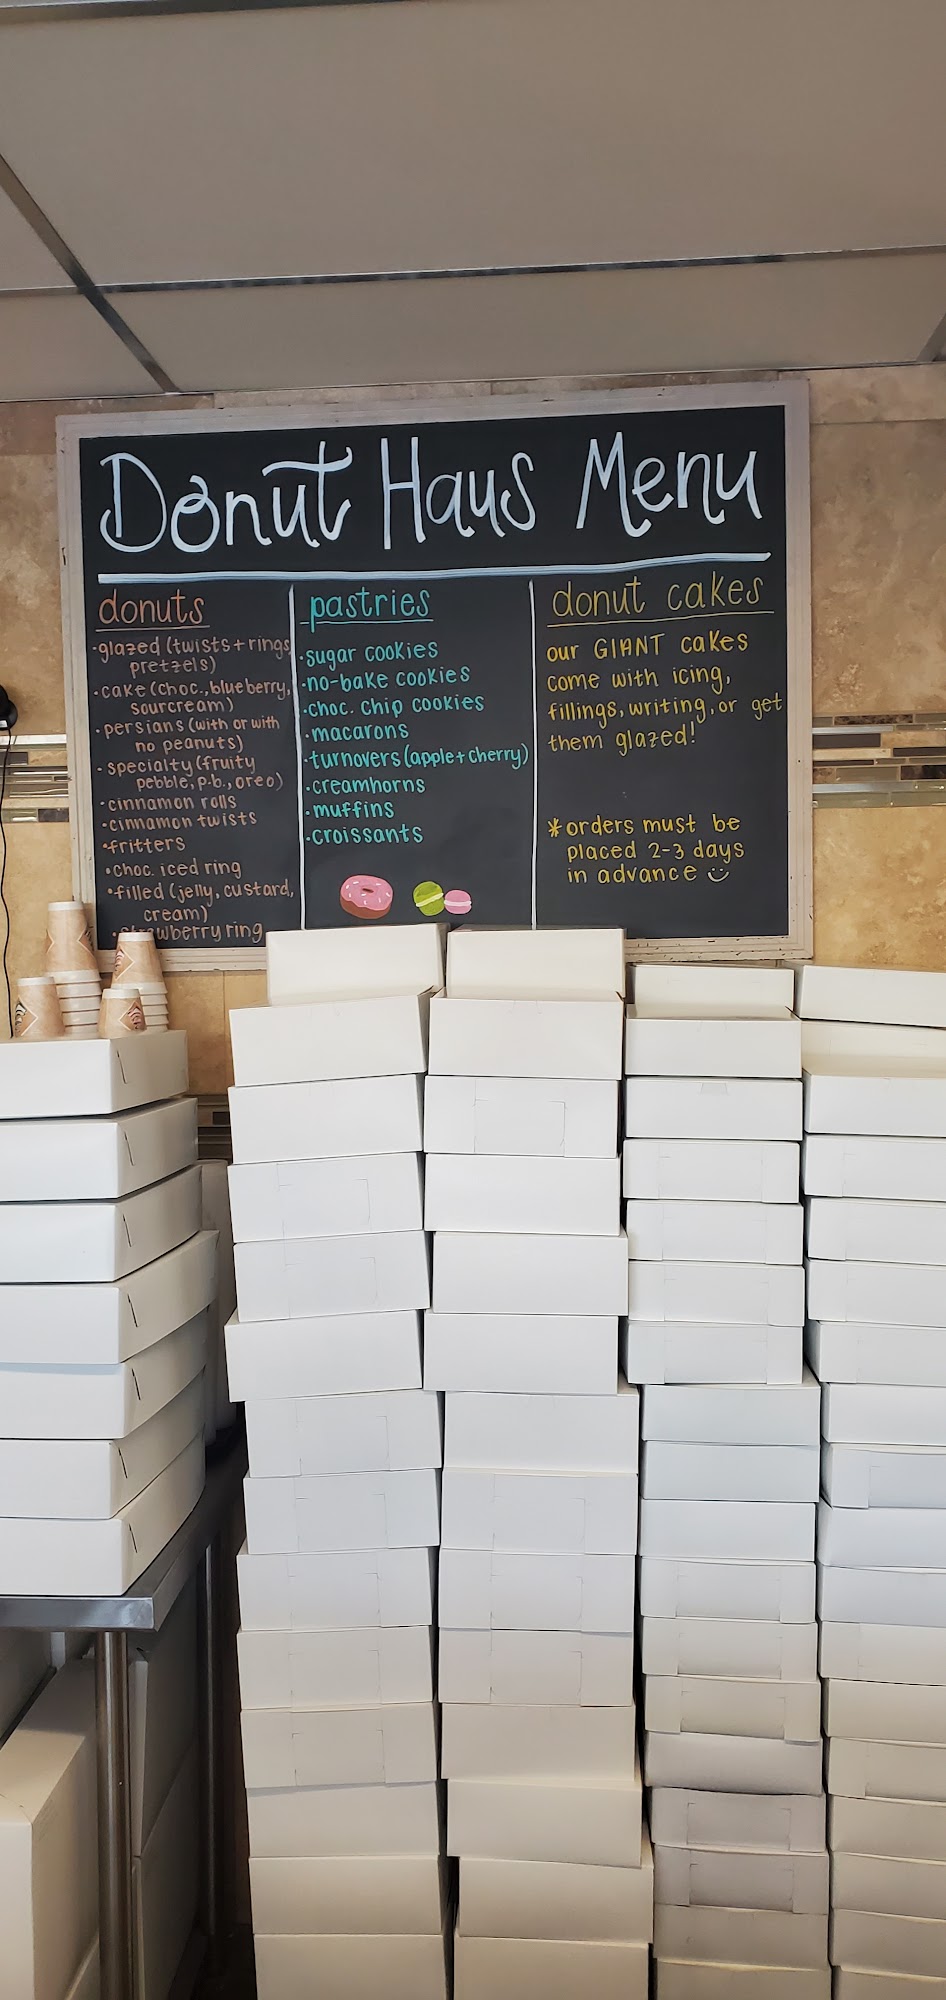 Donut Haus Menu
donuts
·glazed (twists + rings,
pretzels)
·cake (choc., blueberry,
sourcream)
·persians (with or with
no peanuts)
·specialty (fruity
pebble, p.b., oreo)
·cinnamon rolls
·cinnamon twists
·fritters
·choc. iced ring
·filled (jelly, custard,
cream)
·strawberry ring
pastries
·sugar cookies
·no-bake cookies
·choc. chip cookies
·macarons
·turnovers (apple + cherry)
·creamhorns
·muffins
·croissants
donut cakes
our GIANT cakes
come with icing,
fillings, writing, or get
them glazed!
*orders must be
placed 2-3 days
in advance